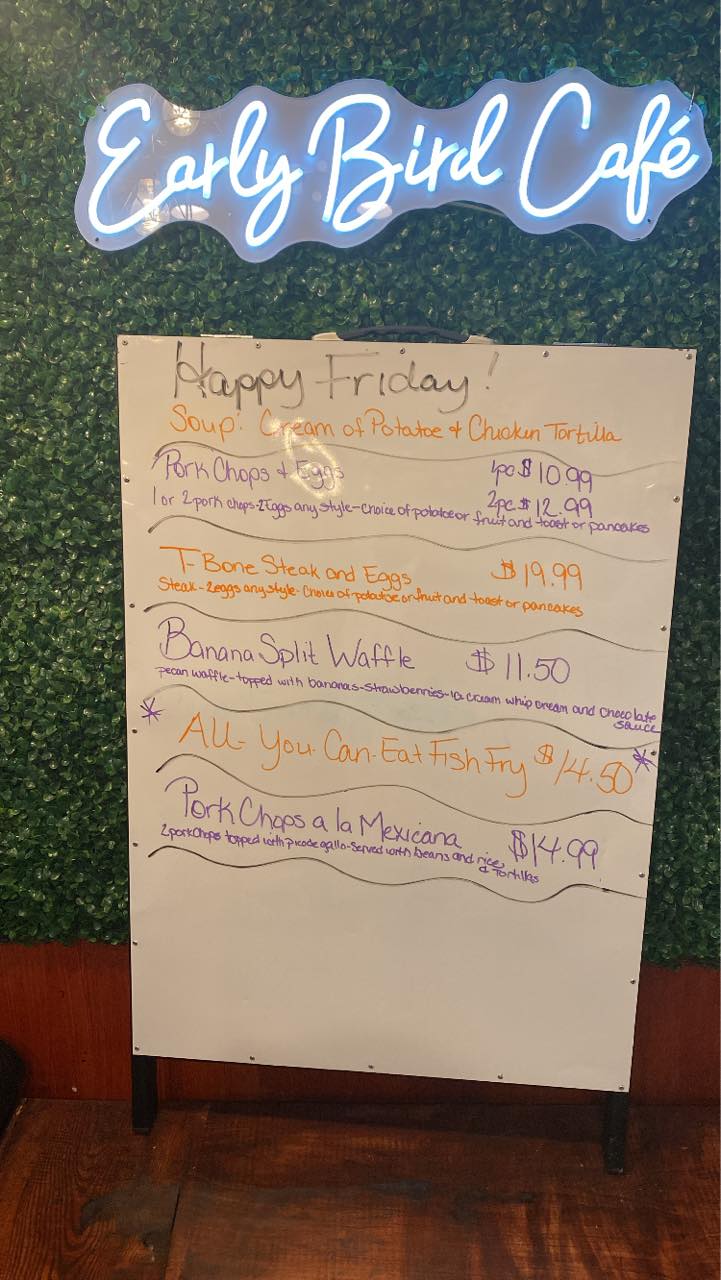 Early Bird Café
Happy Friday!
Soup: Cream of Potatoe & Chicken Tortilla
Pork Chops & Eggs 1pc $10.99
2pc $12.99
1 or 2 pork chops-2Eggs any style-Choice of potatoe or fruit and toast or pancakes
T-Bone Steak and Eggs $19.99
Steak-2eggs any style-Choice of potatoe or fruit and toast or pancakes
Banana Split Waffle $11.50
pecan waffle-topped with bananas-strawberries-ice cream whip cream and chocolate
sauce
* All-You-Can-Eat Fish Fry $14.50 *
Pork Chops a la Mexicana $14.99
2 pork chops topped with pico de gallo-served with beans and rice
& tortillas